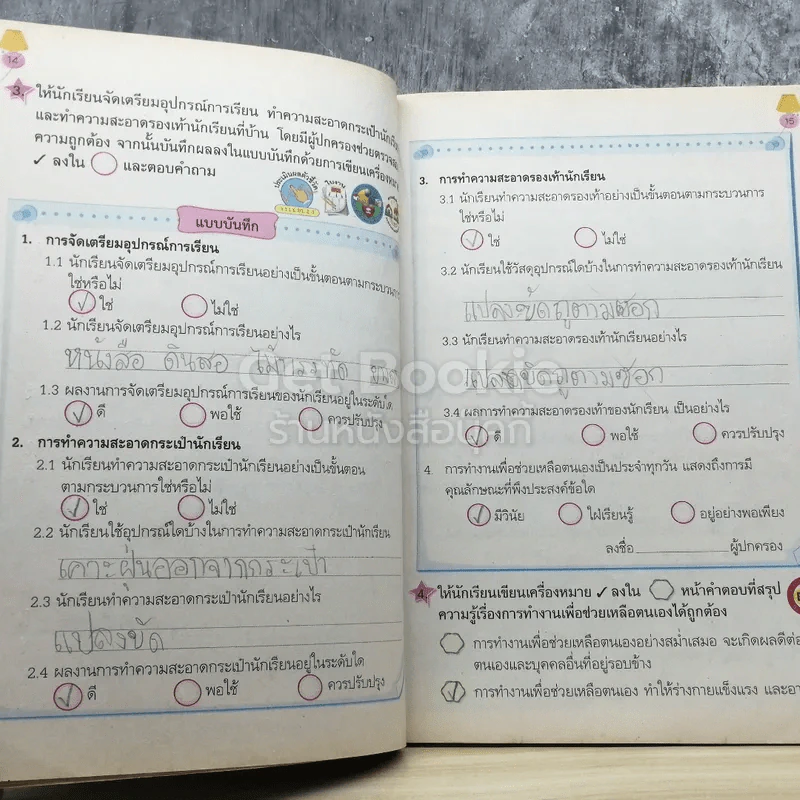 14
3. ให้นักเรียนจัดเตรียมอุปกรณ์การเรียน ทำความสะอาดกระเป๋านักเรีย
และทำความสะอาดรองเท้านักเรียนที่บ้าน โดยมีผู้ปกครองช่วยตรวจ
ความถูกต้อง จากนั้นบันทึกผลลงในแบบบันทึกด้วยการเขียนเครื่องหมา
✓ ลงใน ○ และตอบคำถาม
แบบบันทึก
1. การจัดเตรียมอุปกรณ์การเรียน
1.1 นักเรียนจัดเตรียมอุปกรณ์การเรียนอย่างเป็นขั้นตอนตามกระบวนการ
ใช่หรือไม่
✓ ใช่ ○ ไม่ใช่
1.2 นักเรียนจัดเตรียมอุปกรณ์การเรียนอย่างไร
หนังสือ ดินสอ ไม้บรรทัด
1.3 ผลงานการจัดเตรียมอุปกรณ์การเรียนของนักเรียนอยู่ในระดับใด
✓ ดี ○ พอใช้ ○ ควรปรับปรุง
2. การทำความสะอาดกระเป๋านักเรียน
2.1 นักเรียนทำความสะอาดกระเป๋านักเรียนอย่างเป็นขั้นตอน
ตามกระบวนการใช่หรือไม่
✓ ใช่ ○ ไม่ใช่
2.2 นักเรียนใช้อุปกรณ์ใดบ้างในการทำความสะอาดกระเป๋านักเรียน
เคาะฝุ่นออกจากกระเป๋า
2.3 นักเรียนทำความสะอาดกระเป๋านักเรียนอย่างไร
แปลงขัด
2.4 ผลงานการทำความสะอาดกระเป๋านักเรียนอยู่ในระดับใด
✓ ดี ○ พอใช้ ○ ควรปรับปรุง
15
3. การทำความสะอาดรองเท้านักเรียน
3.1 นักเรียนทำความสะอาดรองเท้าอย่างเป็นขั้นตอนตามกระบวนการ
ใช่หรือไม่
✓ ใช่ ○ ไม่ใช่
3.2 นักเรียนใช้วัสดุอุปกรณ์ใดบ้างในการทำความสะอาดรองเท้านักเรียน
แปลงขัดถูตามซอก
3.3 นักเรียนทำความสะอาดรองเท้านักเรียนอย่างไร
แปลงขัดถูตามซอก
3.4 ผลการทำความสะอาดรองเท้าของนักเรียน เป็นอย่างไร
✓ ดี ○ พอใช้ ○ ควรปรับปรุง
4. การทำงานเพื่อช่วยเหลือตนเองเป็นประจำทุกวัน แสดงถึงการมี
คุณลักษณะที่พึงประสงค์ข้อใด
✓ มีวินัย ○ ใฝ่เรียนรู้ ○ อยู่อย่างพอเพียง
ลงชื่อ ผู้ปกครอง
4. ให้นักเรียนเขียนเครื่องหมาย ✓ ลงใน ⬡ หน้าคำตอบที่สรุป
ความรู้เรื่องการทำงานเพื่อช่วยเหลือตนเองได้ถูกต้อง
⬡ การทำงานเพื่อช่วยเหลือตนเองอย่างสม่ำเสมอ จะเกิดผลดีต่อ
ตนเองและบุคคลอื่นที่อยู่รอบข้าง
✓ การทำงานเพื่อช่วยเหลือตนเอง ทำให้ร่างกายแข็งแรง และ
Get Bookie
ร้านหนังสือบุคกี้